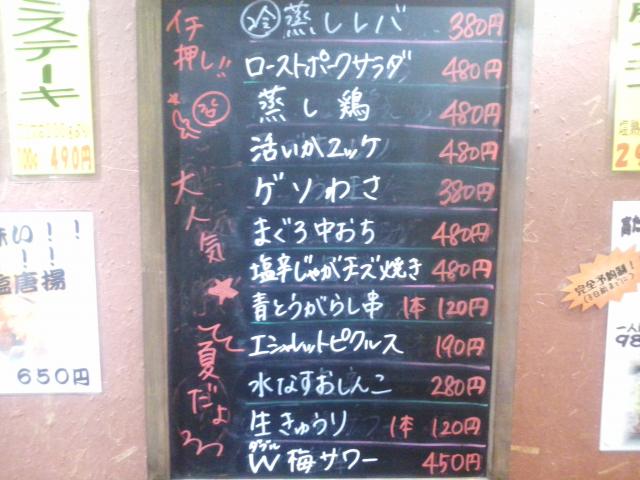 ミステーキ
100g 490円
味い!!
!!
塩唐揚
650円
イチ押し!!
大人気★
夏だよ
冷 蒸しレバ 380円
ローストポークサラダ 480円
蒸し鶏 480円
活いかユッケ 480円
ゲソわさ 380円
まぐろ中おち 480円
塩辛じゃがチーズ焼き 480円
青とうがらし串 1本 120円
エシャレットピクルス 190円
水なすおしんこ 280円
生きゅうり 1本 120円
ダブル
W梅サワー 450円
完全予約制!
98